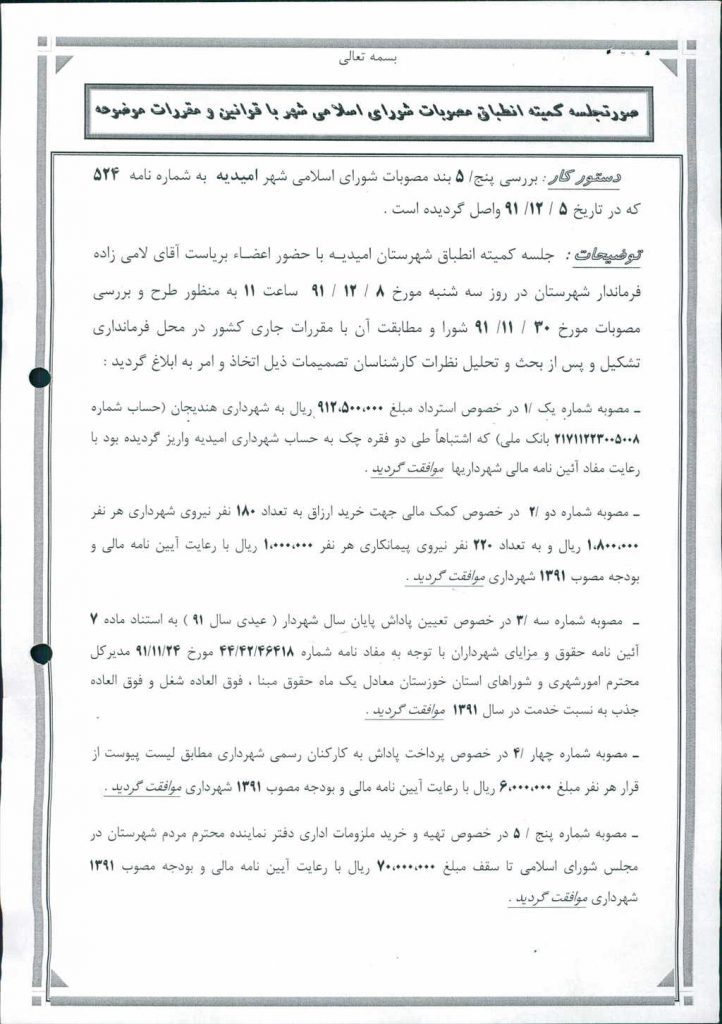 بسمه تعالی
صورتجلسه کمیته انطباق مصوبات شورای اسلامی شهر با قوانین و مقررات موضوعه
دستور کار : بررسی پنج/ ۵ بند مصوبات شورای اسلامی شهر امیدیه به شماره نامه ۵۲۴
که در تاریخ ۵ / ۱۲ / ۹۱ واصل گردیده است .
توضیحات : جلسه کمیته انطباق شهرستان امیدیـه با حضور اعضـاء بریاست آقای لامی زاده
فرماندار شهرستان در روز سه شنبه مورخ ۸ / ۱۲ / ۹۱ ساعت ۱۱ به منظور طرح و بررسی
مصوبات مورخ ۳۰ / ۱۱/ ۹۱ شورا و مطابقت آن با مقررات جاری کشور در محل فرمانداری
تشکیل و پس از بحث و تحلیل نظرات کارشناسان تصمیمات ذیل اتخاذ و امر به ابلاغ گردید :
ـ مصوبه شماره یک /۱ در خصوص استرداد مبلغ ۹۱۲،۵۰۰،۰۰۰ ریال به شهرداری هندیجان (حساب شماره
۲۱۷۱۱۲۲۳۰۰۵۰۰۸ بانک ملی) که اشتباهاً طی دو فقره چک به حساب شهرداری امیدیه واریز گردیده بود با
رعایت مفاد آئین نامه مالی شهرداریها موافقت گردید .
ـ مصوبه شماره دو /۲ در خصوص کمک مالی جهت خرید ارزاق به تعداد ۱۸۰ نفر نیروی شهرداری هر نفر
۱،۸۰۰،۰۰۰ ریال و به تعداد ۲۲۰ نفر نیروی پیمانکاری هر نفر ۱،۰۰۰،۰۰۰ ریال با رعایت آیین نامه مالی و
بودجه مصوب ۱۳۹۱ شهرداری موافقت گردید .
ـ مصوبه شماره سه /۳ در خصوص تعیین پاداش پایان سال شهردار ( عیدی سال ۹۱ ) به استناد ماده ۷
آئین نامه حقوق و مزایای شهرداران با توجه به مفاد نامه شماره ۴۴/۴۲/۴۶۴۱۸ مورخ ۹۱/۱۱/۲۴ مدیرکل
محترم امورشهری و شوراهای استان خوزستان معادل یک ماه حقوق مبنا ، فوق العاده شغل و فوق العاده
جذب به نسبت خدمت در سال ۱۳۹۱ موافقت گردید .
ـ مصوبه شماره چهار /۴ در خصوص پرداخت پاداش به کارکنان رسمی شهرداری مطابق لیست پیوست از
قرار هر نفر مبلغ ۶،۰۰۰،۰۰۰ ریال با رعایت آیین نامه مالی و بودجه مصوب ۱۳۹۱ شهرداری موافقت گردید .
ـ مصوبه شماره پنج / ۵ در خصوص تهیه و خرید ملزومات اداری دفتر نماینده محترم مردم شهرستان در
مجلس شورای اسلامی تا سقف مبلغ ۷۰،۰۰۰،۰۰۰ ریال با رعایت آیین نامه مالی و بودجه مصوب ۱۳۹۱
شهرداری موافقت گردید .